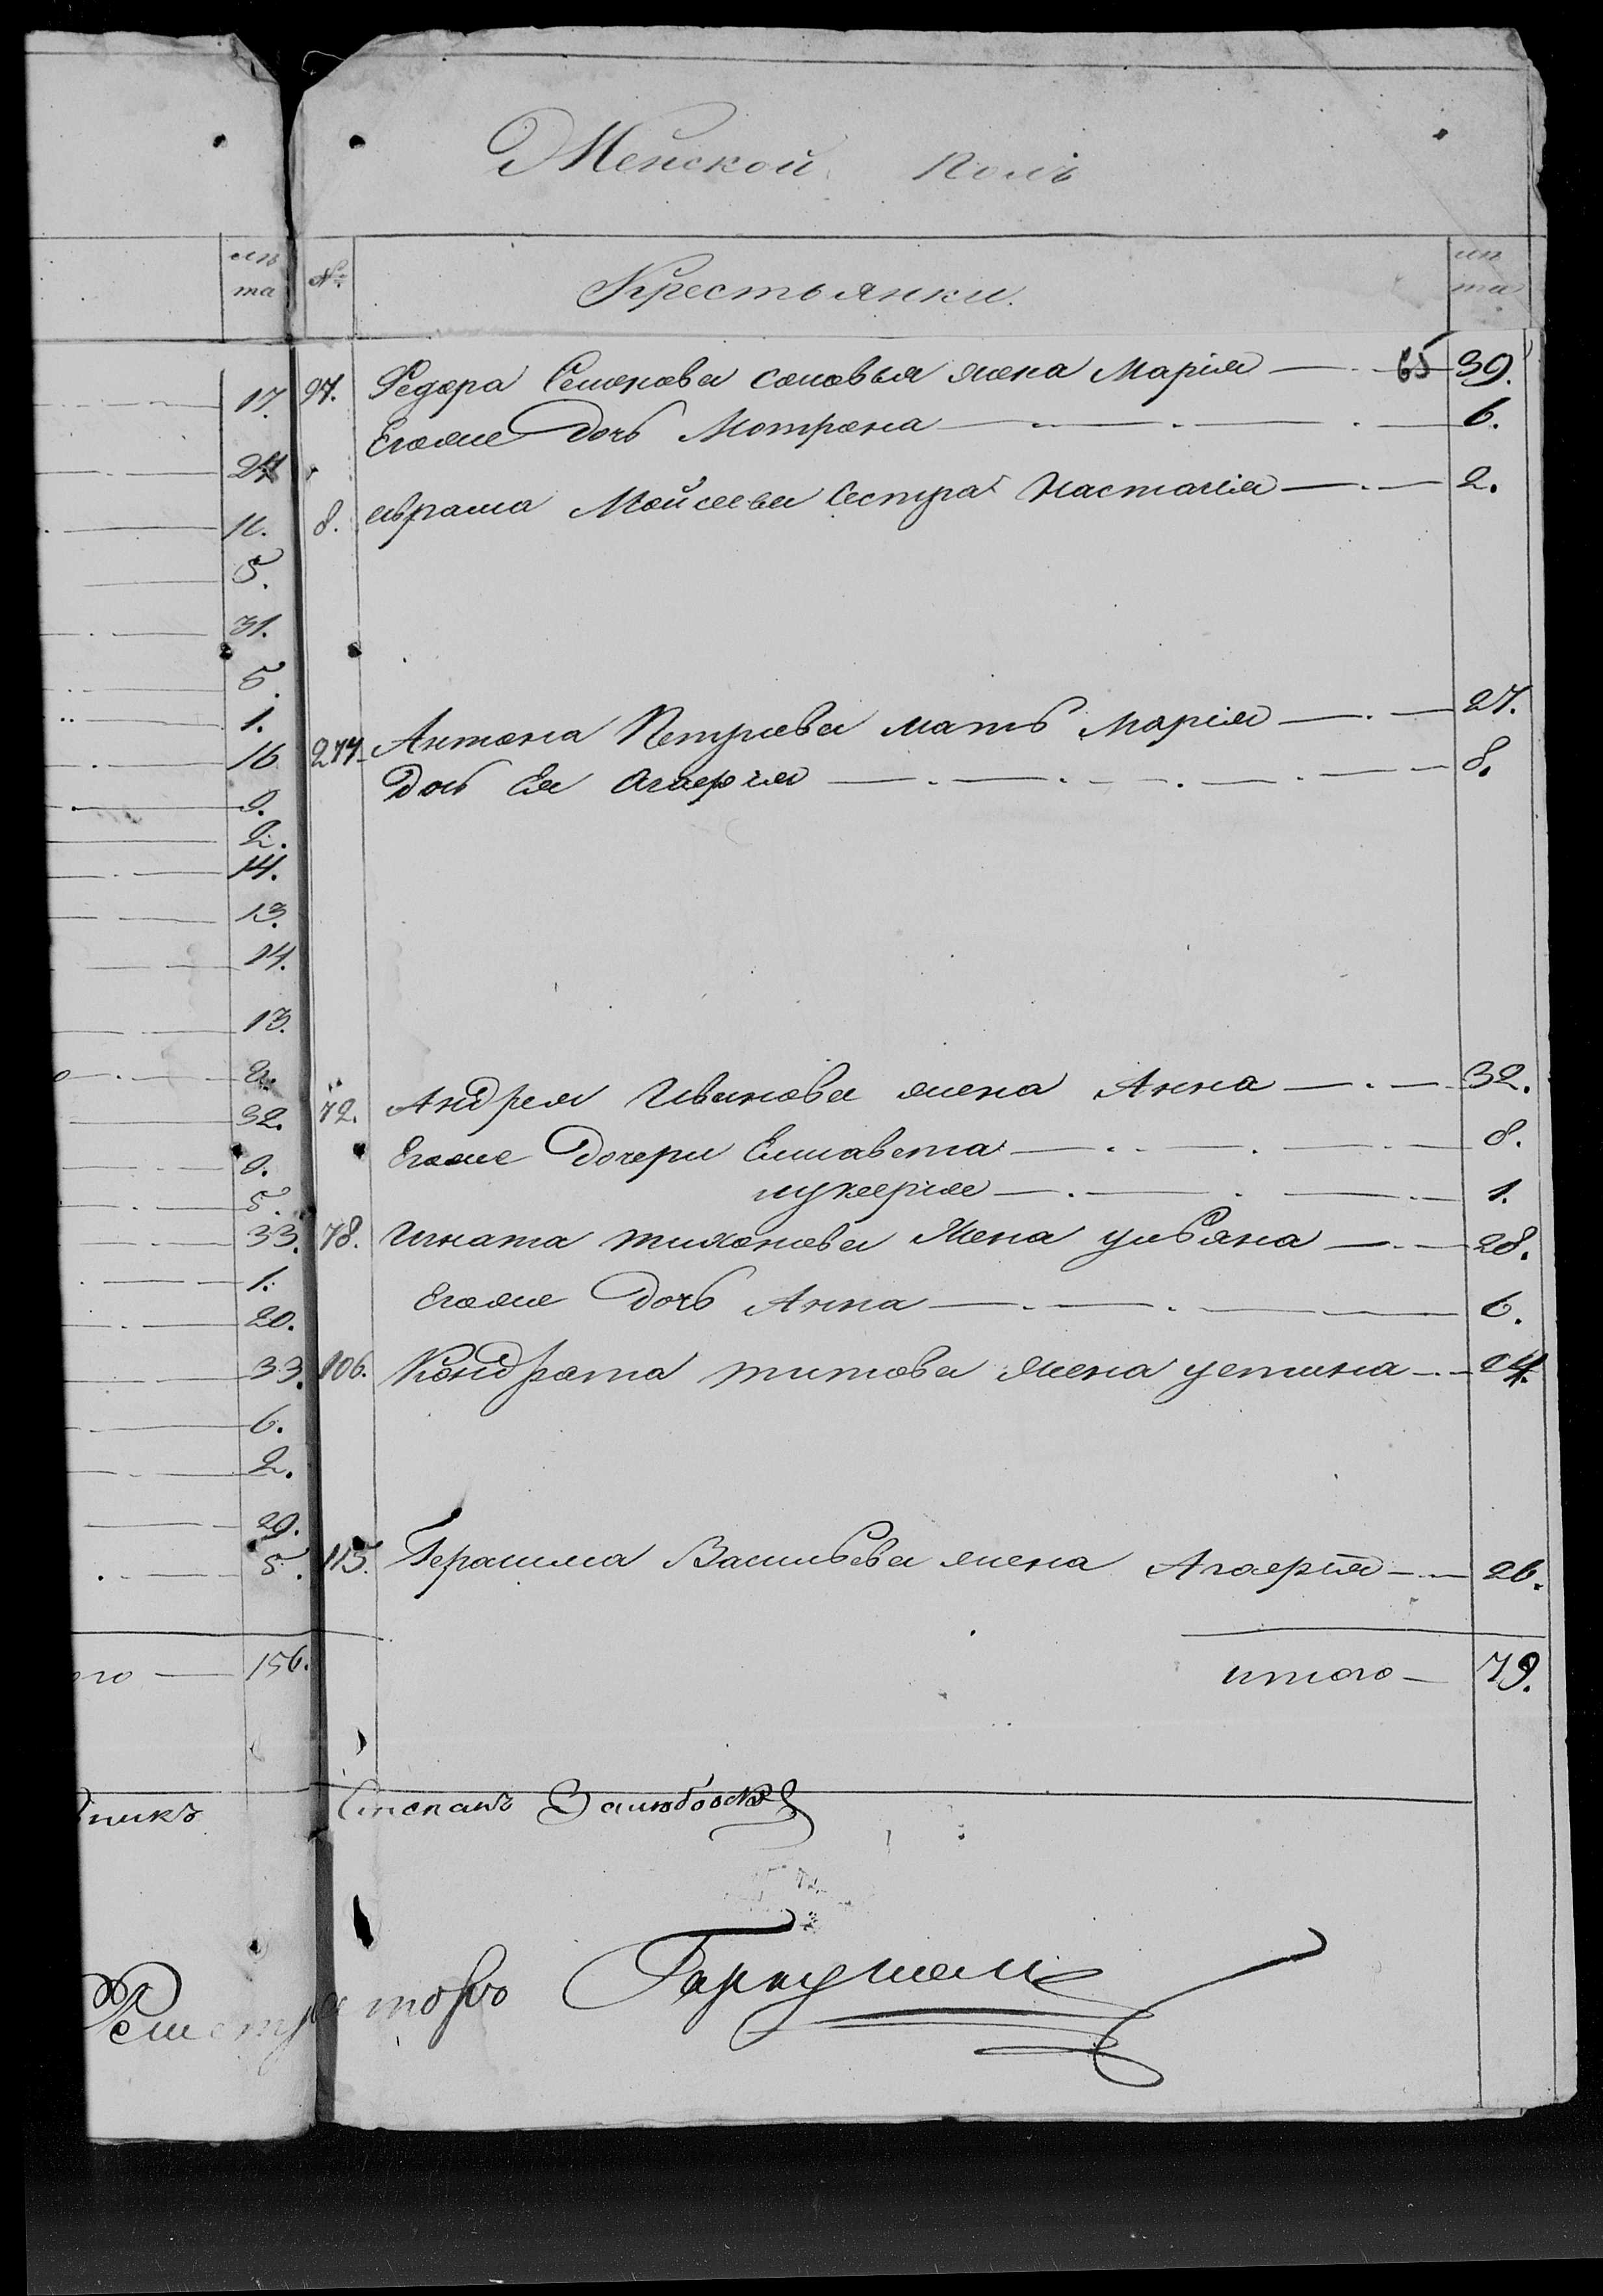 Женской полъ
лѣ
та
№
Крестьянки.
лѣ
та
17. 97. Федора Семенова соловья жена Марія 65 39.
Егоже дочь Мотрона 6.
24
11. 8. аврама Мойсеева Сестра Настасія 2.
5.
31.
5.
1.
Антона Петриева мать Марія 27.
16 277
Дочь Ея Агафія 8.
9.
2.
14.
13.
14.
13.
32. 72. Андрея Иванова жена Анна 32.
8. Егоже Дочери Елисавета 8.
5. лукерія 1.
33. 78. Игната тихонова Жена ульяна 28.
1. Егоже дочь Анна 6.
20.
33. 106. Кондрата титова жена устина 24.
6.
2.
29.
5. 115. Герасима Васильева жена Агафія 26.
156. итого 79.
никъ Степанъ
Регистраторъ